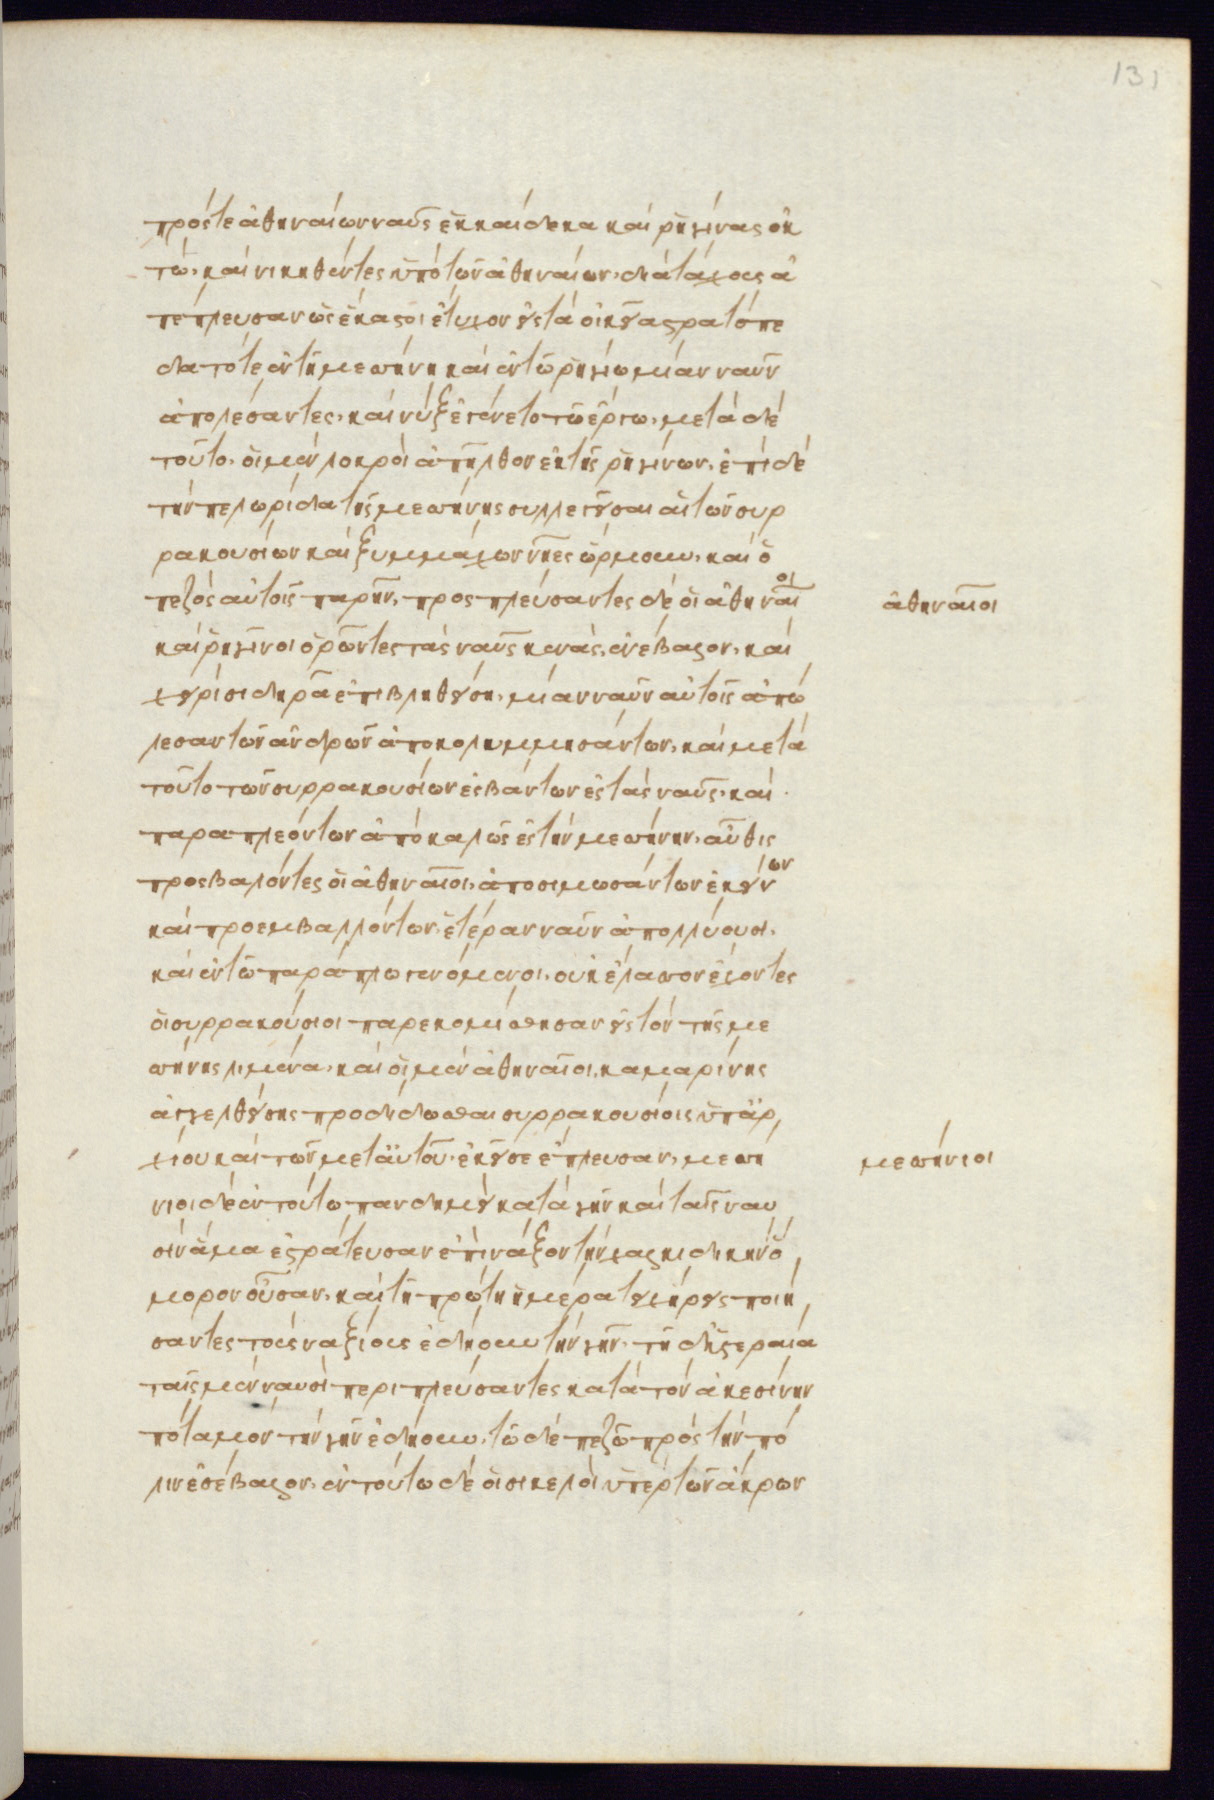 131
πρός τε ἀθηναίων ναῦς ἑκκαίδεκα καὶ ῥηγίνας ὀκ
τώ, καὶ νικηθέντες ὑπὸ τῶν ἀθηναίων, διὰ τάχους ἀ
πέπλευσαν ὡς ἕκαστοι ἔτυχον εἰς τὰ οἰκεῖα στρατόπε
δα τό τε ἐν τῆ μεσσήνη καὶ ἐν τῶ ῥηγίω μίαν ναῦν
ἀπολέσαντες, καὶ νὺξ ἐπεγένετο τῶ ἔργω, μετὰ δὲ
τοῦτο, οἱ μὲν λοκροὶ ἀπῆλθον ἐκ τῆς ῥηγίνων, ἐπὶ δὲ
τὴν πελωρίδα τῆς μεσσήνης συλλεγεῖσαι αἱ τῶν συρ
ρακουσίων καὶ ξυμμάχων νῆες ὥρμουν, καὶ ὁ
πεζὸς αὐτοῖς παρῆν, προςπλεύσαντες δὲ οἱ ἀθηναῖοι
ἀθηναῖοι
καὶ ῥηγῖνοι ὁρῶντες τὰς ναῦς κενὰς, ἐνέβαλον, καὶ
χειρὶ σιδηρᾶ ἐπιβληθείση, μίαν ναῦν αὐτοῖς ἀπώ
λεσαν τῶν ἀνδρῶν ἀποκολυμμησάντων, καὶ μετὰ
τοῦτο τῶν συρρακουσίων ἐςβάντων ἐς τὰς ναῦς, καὶ
παραπλεόντων ἀπὸ κάλως ἐς τὴν μεσσήνην, αὖθις
προςβαλόντες οἱ ἀθηναῖοι, ἀποσιμωσάντων ἐκείνων
καὶ προεμβαλλόντων, ἑτέραν ναῦν ἀπολλύουσι,
καὶ ἐν τῶ παράπλω γενόμενοι, οὐκ ἔλασσον ἔχοντες
οἱ συρρακούσιοι παρεκομίσθησαν εἰς τὸν τῆς με
σσήνης λιμένα, καὶ οἱ μὲν ἀθηναῖοι, καμαρίνης
ἀγγελθείσης προδίδοσθαι συρρακουσίοις ὑπ' ἀρ
χίου καὶ τῶν μετ' αὐτοῦ, ἐκεῖσε ἔπλευσαν, μεσση
μεσσήνιοι
νιοι δ' ἐν τούτω πανδημεὶ κατὰ γῆν καὶ ταῖς ναυ
σὶν ἅμα ἐστράτευσαν ἐπὶ νάξον τὴν χαλκιδικὴν ὅ
μορον οὖσαν, καὶ τῆ πρώτη ἡμέρα τειχήρεις ποιή
σαντες τοὺς ναξίους ἐδήουν τὴν γῆν, τῆ δ' ὑστεραία
ταῖς μὲν ναυσὶ περιπλεύσαντες κατὰ τὸν ἀκεσίνην
πόταμον τὴν γῆν ἐδήουν, τῶ δὲ πεζῶ πρὸς τὴν πό
λιν ἐσέβαλον, ἐν τούτω δὲ οἱ σικελοὶ ὑπὲρ τῶν ἄκρων